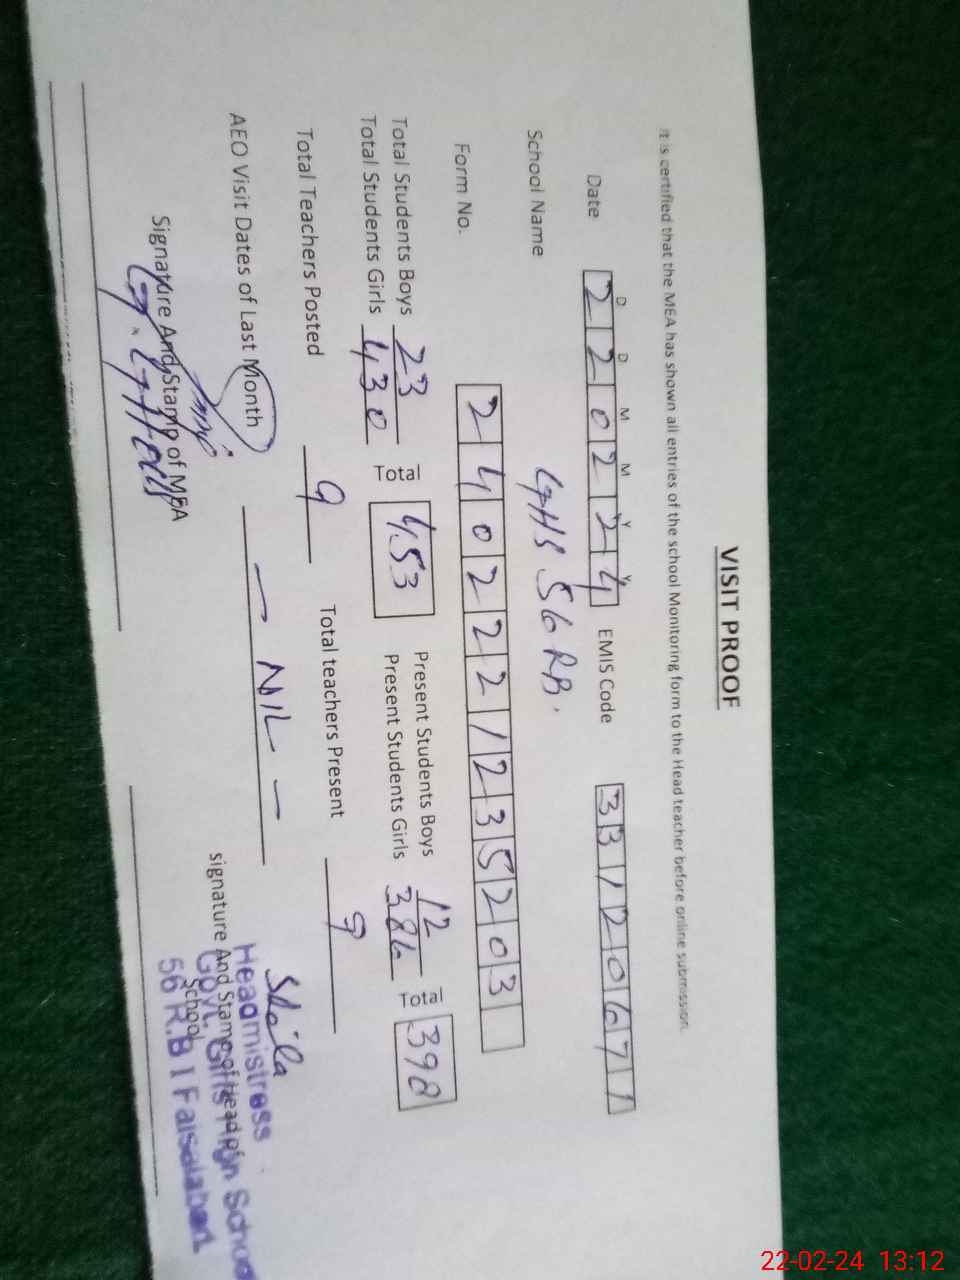 VISIT PROOF
It is certified that the MEA has shown all entries of the school Monitoring form to the Head teacher before online submission.
D D M M Y Y
Date 220224 EMIS Code 33120671
School Name GHS 56 RB.
Form No. 2402221235203
Total Students Boys 23 Total 453 Present Students Boys 12 Total 398
Total Students Girls 430 Present Students Girls 386
Total Teachers Posted 9 Total teachers Present 9
AEO Visit Dates of Last Month — NIL —
Signature And Stamp of MEA
Shaila
signature And Stamp of Head of School
Headmistress
Govt. Girls High School
56 R.B I Faisalabad
22-02-24 13:12